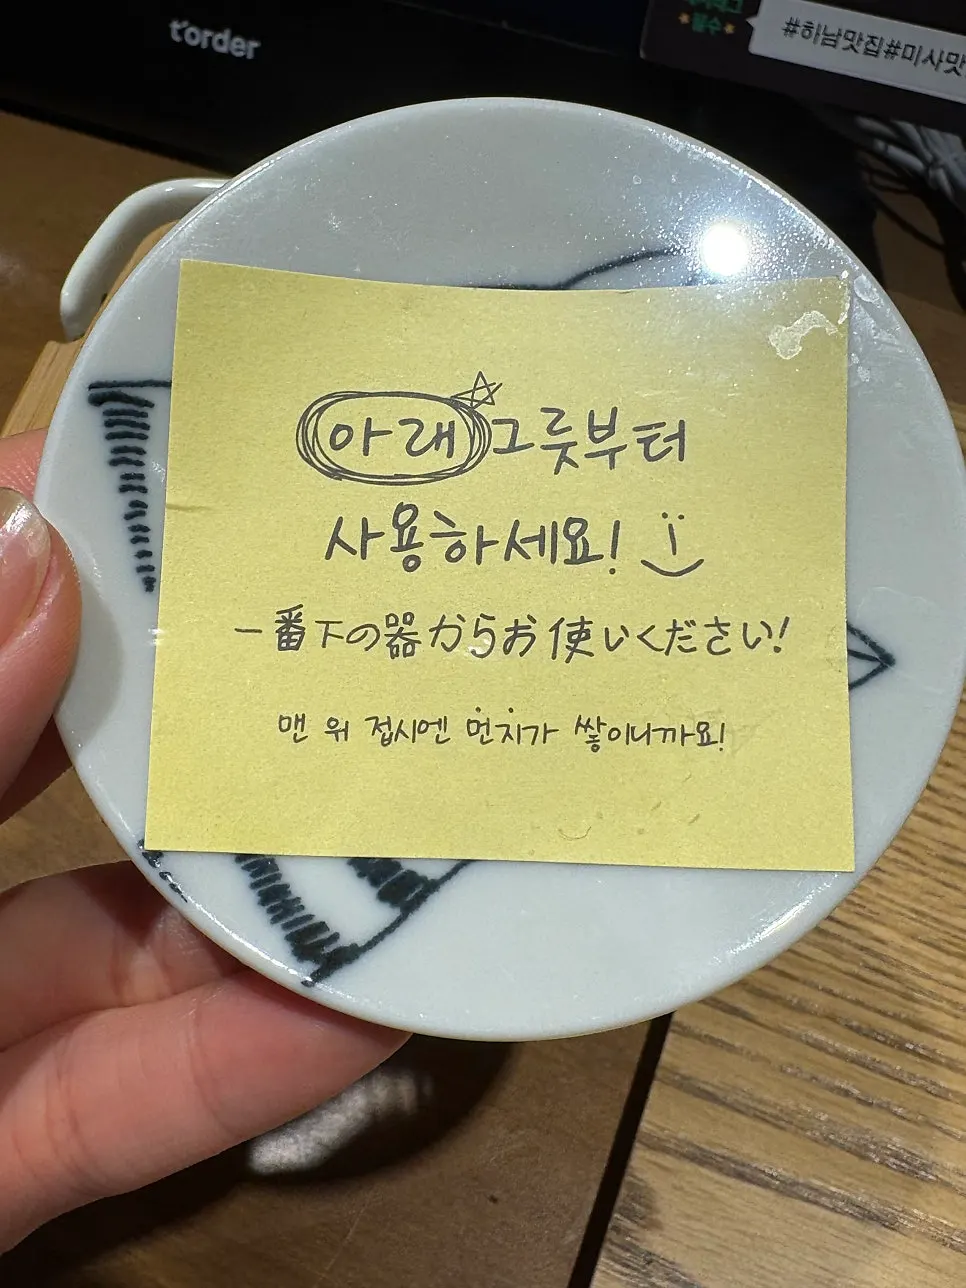 t'order
#하남맛집#미사맛
아래 그릇부터
사용하세요!
一番下の器からお使いください!
맨 위 접시엔 먼지가 쌓이니까요!